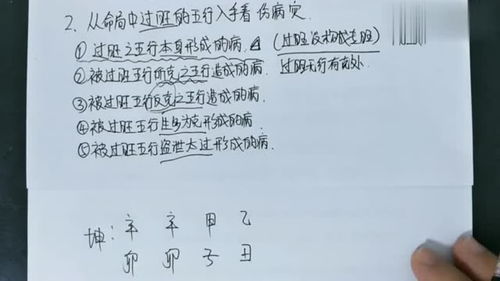 2、从命局中过旺的五行入手看伤病灾.
①过旺之五行本身形成的病. (过旺没构成走旺)
②被过旺五行所克之五行造成的病. 过旺五行有制处.
③被过旺五行反克之五行造成的病.
④被过旺五行生多为克形成的病.
⑤被过旺五行盗泄太过形成的病.
坤: 辛 辛 甲 乙
卯 卯 子 丑